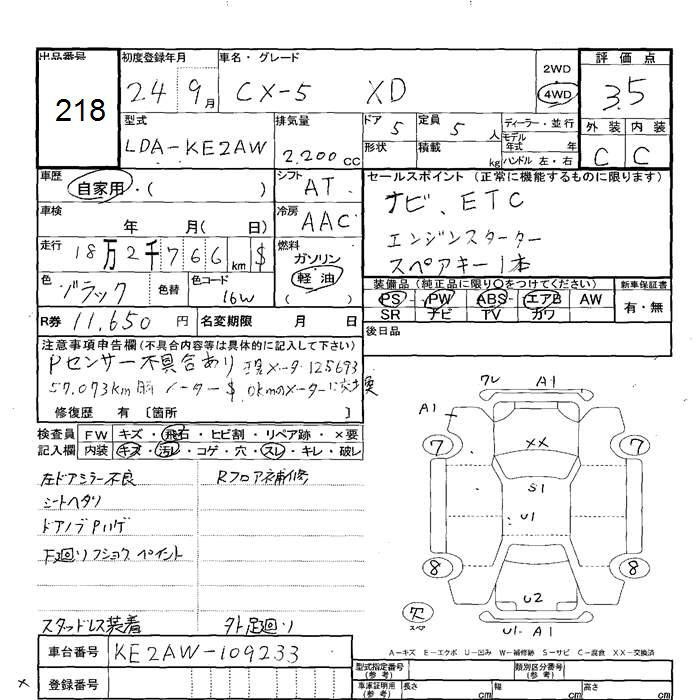 出品番号
218
初度登録年月
24 9月
車名・グレード
CX-5 XD
2WD
4WD
評価点
3.5
外装 内装
C C
型式
LDA-KE2AW
排気量
2,200cc
ドア 5
定員 5人
形状
積載 kg
ディーラー・並行
モデル年式 年
ハンドル 左・右
車歴
自家用・( )
シフト
AT
車検
年 月( 日)
冷房
AAC
走行
18万2千766km $
燃料
ガソリン
軽油
( )
色
ブラック
色替
色コード
16W
セールスポイント(正常に機能するものに限ります)
ナビ、ETC
エンジンスターター
スペアキー1本
装備品(純正品に限り○をつけてください)
PS PW ABS エアB AW
SR ナビ TV カワ
新車保証書
有・無
R券 11,650円
名変期限 月 日
後日品
注意事項申告欄(不具合内容等は具体的に記入して下さい)
Pセンサー不具合あり 現メータ 125693
57,073km時 メーター$ 0kmのメーターに交換
修復歴 有〔箇所 〕
検査員記入欄
FW キズ・飛石・ヒビ割・リペア跡・×要
内装 キズ・汚レ・コゲ・穴・スレ・キレ・破レ
左ドアミラー不良
シートヘタリ
ドアノブPハゲ
下廻りフショク ペイント
スタッドレス装着
Rフロア補修
外 足廻り
ワレ A1
A1
7 7
XX
S1
U1
8 8
U2
欠
スペア
U1・A1
A-キズ E-エクボ U-凹み W-補修跡 S-サビ C-腐食 XX-交換済
車台番号
KE2AW-109233
登録番号
型式指定番号(参考)
類別区分番号(参考)
車庫証明用(参考)
長さ cm
幅 cm
高さ cm
×